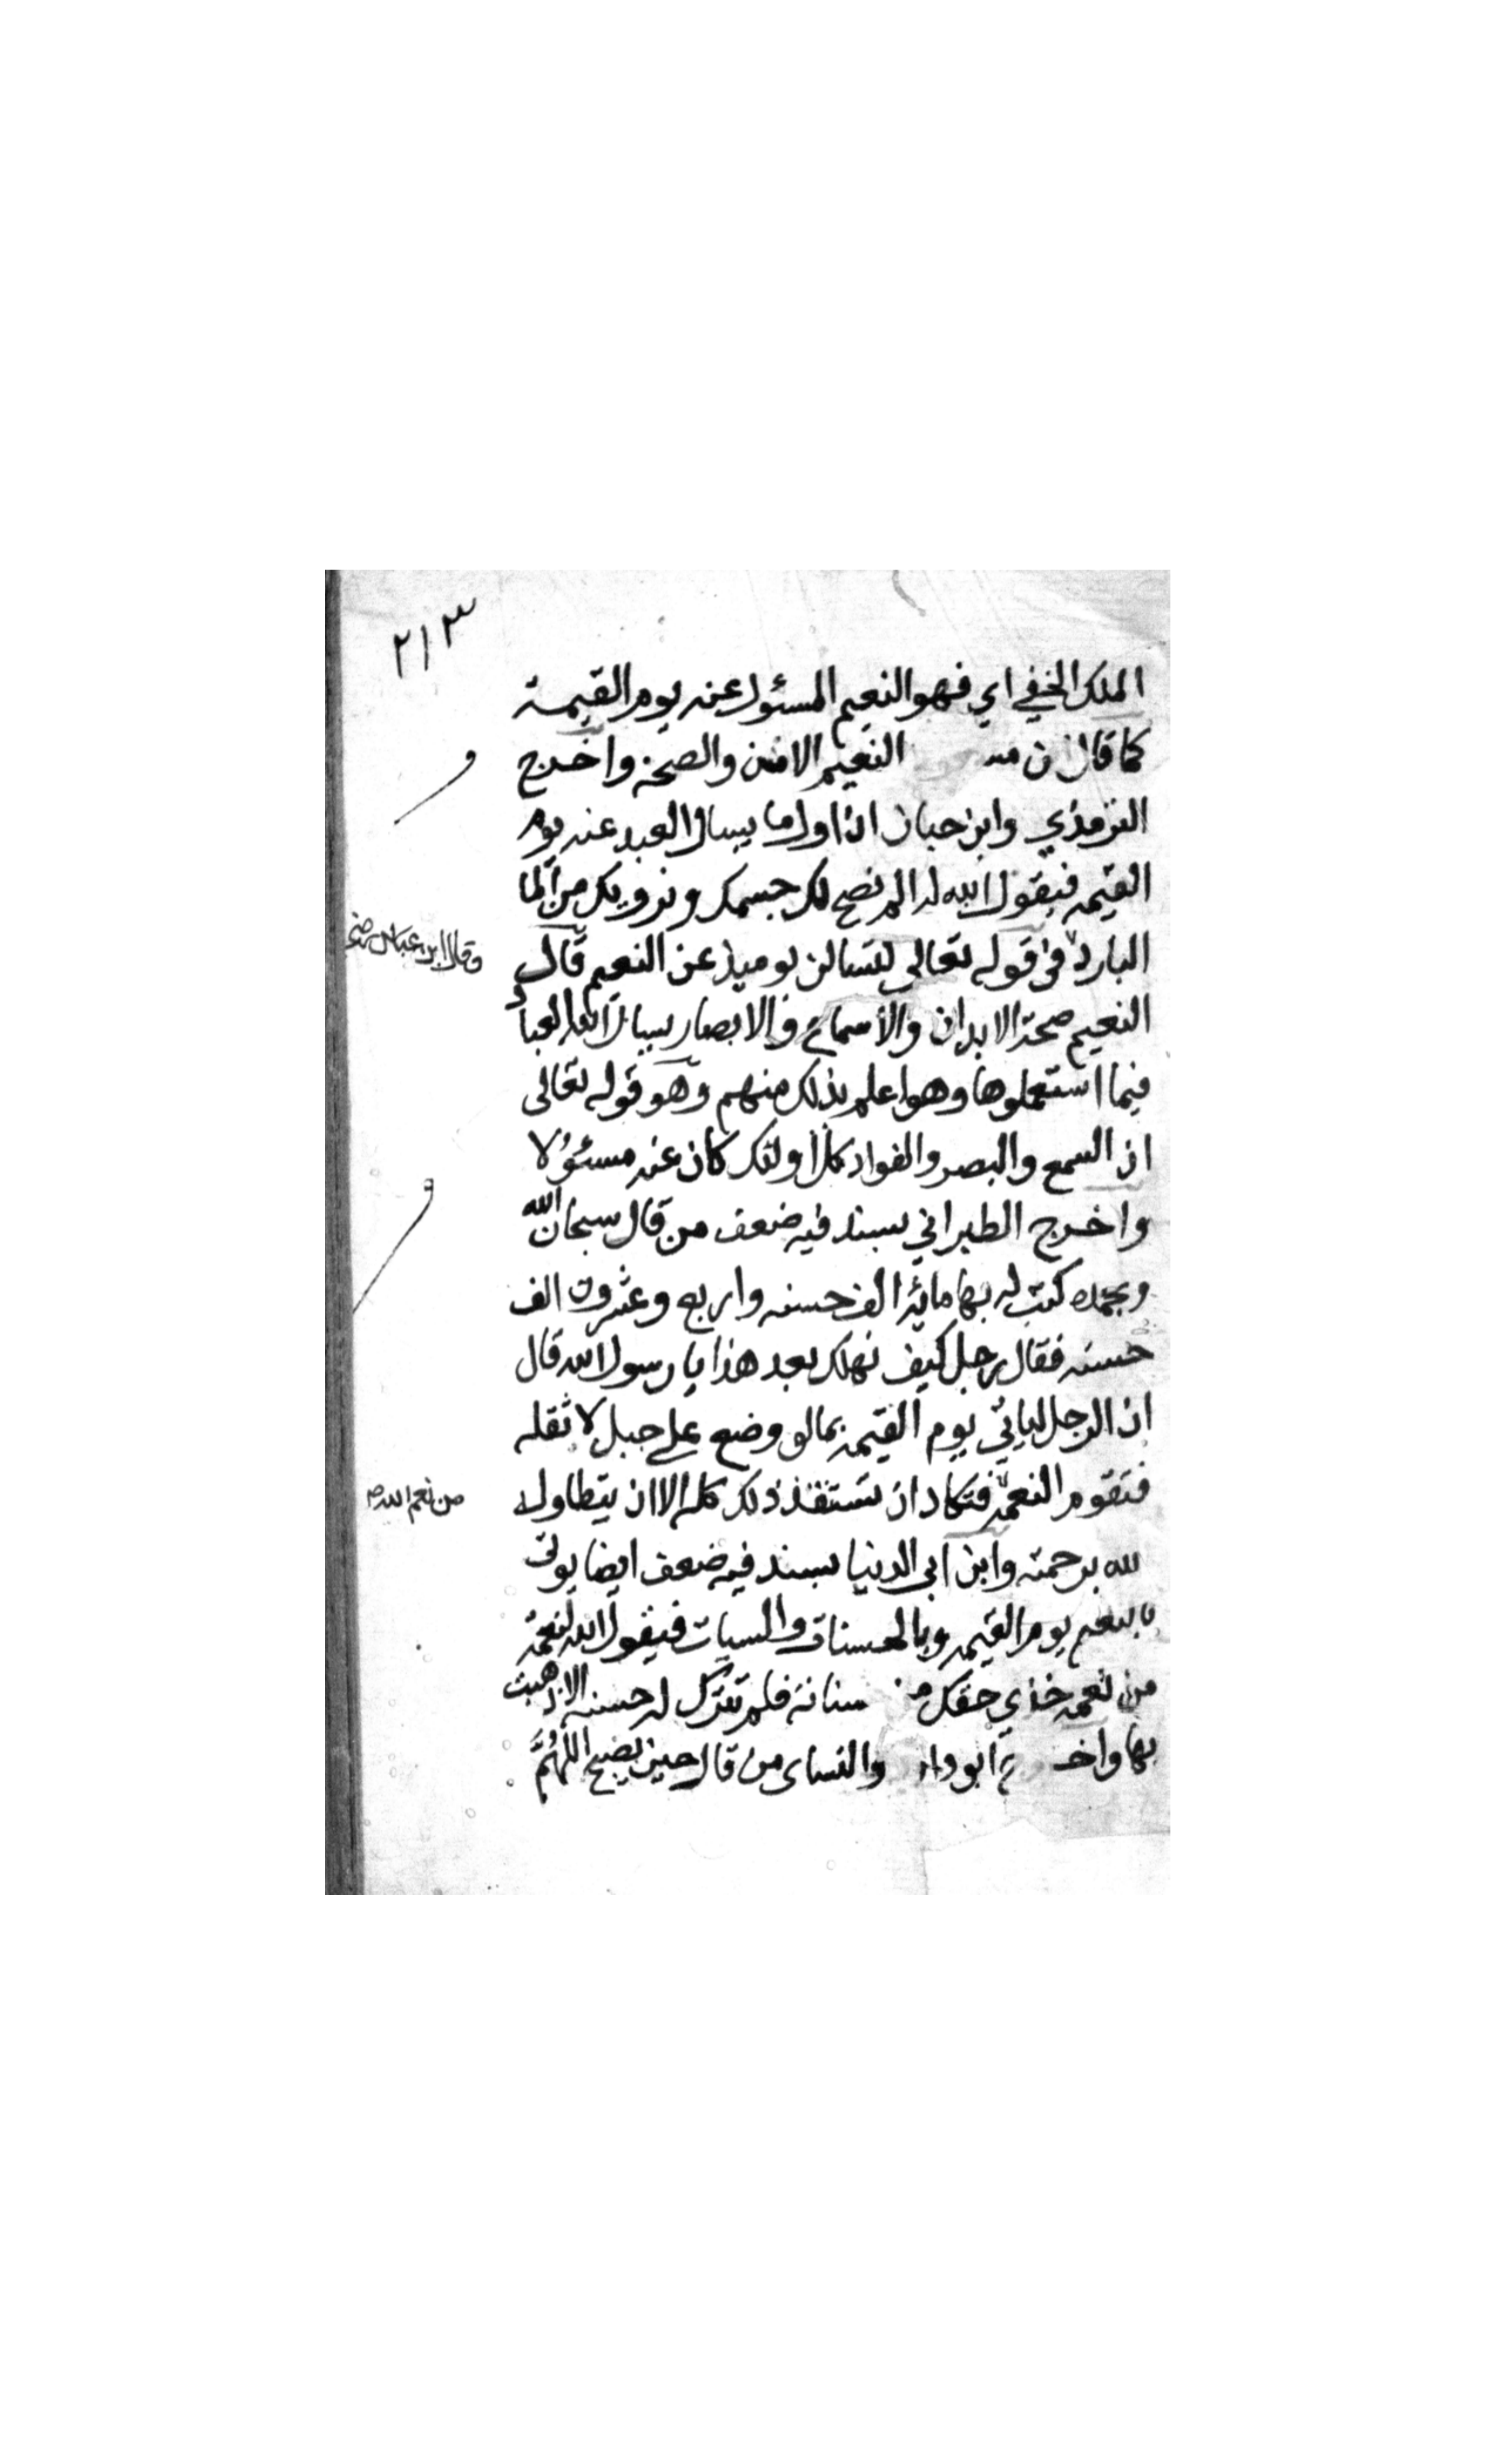 ٢١٣
الملك الخفي اي فهو النعيم المسئول عنه يوم القيمة
كما قال ن مس النعيم الامن والصحة واخرج
الترمذي وابن حبان ان اول ما يسال العبد عنه يوم
القيمه فيقول الله له الم نصح لك جسمك ونرويك من الما
البارد في قوله تعالي لتسالن يوميذ عن النعيم قال
وقال ابن عباس رضي
النعيم صحة الابدان والاسماع والابصار يسال الله العباد
فيما استعملوها وهو اعلم بذلك منهم وهو قوله تعالى
ان السمع والبصر والفواد كل اولئك كان عنه مسئولا
واخرج الطبراني بسند فيه ضعف من قال سبحان الله
وبحمده كتب له بها مائة الف حسنه واربع وعشرون الف
حسنه فقال رجل كيف نهلك بعد هذا يا رسول الله قال
ان الرجل لياتي يوم القيمه بما لو وضع علي جبل لاثقله
فتقوم النعمة فتكاد ان تستنفذ ذلك كله الا ان يتطاول
من نعم الله
الله برحمته وابن ابي الدنيا بسند فيه ضعف ايضا يوتى
بالنعم يوم القيمه وبالحسنات والسيات فيقول الله لنعمة
من نعمه خذي حقك من سناته فلم تترك له حسنه الا ذهبت
بها واخرج ابو داود والنساى من قال حين يصبح اللهم